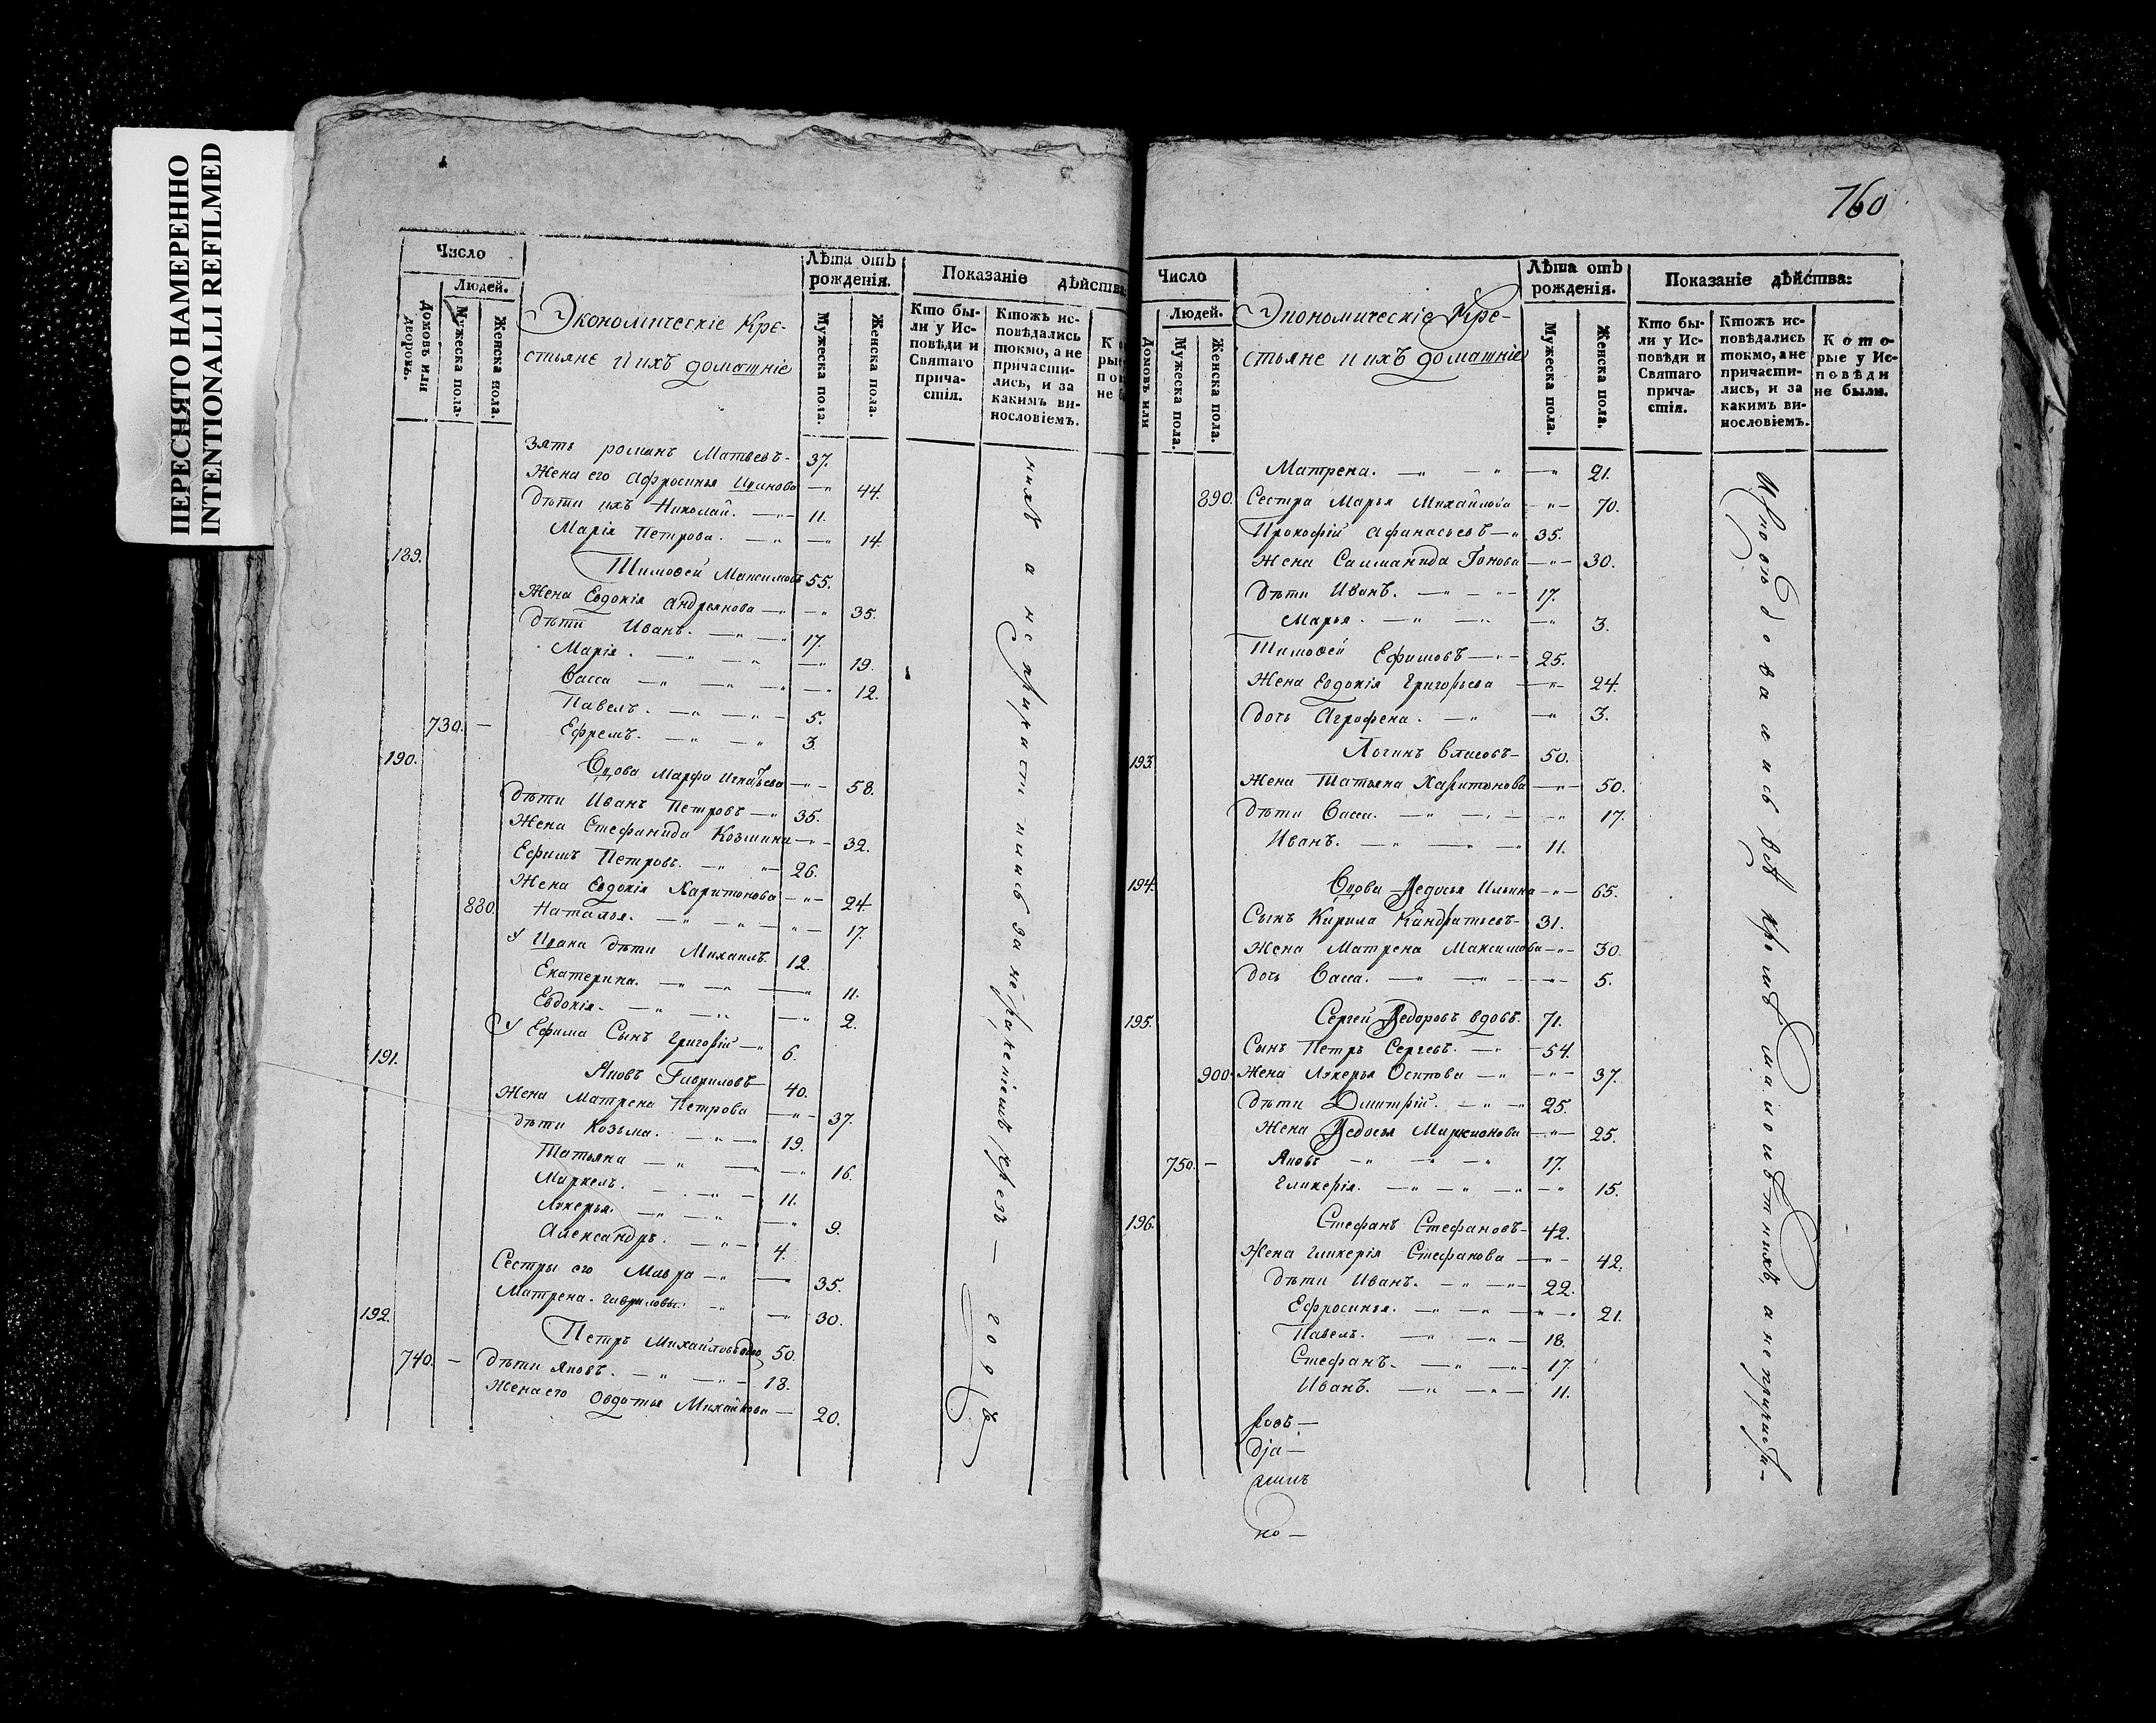 ПЕРЕСНЯТО НАМЕРЕННО
INTENTIONALLI REFILMED
Число
Людей.
Домовъ или дворовъ.
Мужеска пола.
Женска пола.
Экономическіе Кре-
стьяне и ихъ домашніе
Лѣта отъ рожденія.
Мужеска пола.
Женска пола.
Показаніе дѣйства:
Кто бы-
ли у Ис-
повѣди и
Святаго
прича-
стія.
Ктожъ ис-
повѣдались
токмо, а не
причасти-
лись, и за
какимъ ви-
нословіемъ.
Зять романъ Матвеевъ- 37.
Жена его Афросинья Иванова —"— 44.
Дѣти ихъ Николай. —"— 11.
Марія Петрова. —"— 14.
189. Тимофей Максимовъ 55.
Жена Евдокія Андреянова —"— 35.
Дѣти Иванъ. —"— 17.
Марія. —"— 19.
Васса —"— 12.
Павелъ. —"— 5.
730. — Ефремъ. —"— 3.
190. Вдова Марфа Игнатьева —"— 58.
Дѣти Иванъ Петровъ —"— 35.
Жена Стефанида Козмина —"— 32.
Ефимъ Петровъ. —"— 26.
Жена Евдокія Харитонова —"— 24.
880. Наталья. —"— 17.
У Ивана дѣти Михаилъ. 12.
Екатерина. —"— 11.
Евдокія. —"— 2.
У Ефима Сынъ Григорій —"— 6.
191. Яковъ Гавриловъ 40.
Жена Матрена Петрова —"— 37.
дѣти Козьма. —"— 19.
Татьяна —"— 16.
Маркелъ. —"— 11.
Лукерья. —"— 9.
Александръ. —"— 4.
Сестры его Мавра —"— 35.
Матрена. Гавриловы. —"— 30.
192. Петръ Михайловъ 50.
740. — Дѣти Яковъ. —"— 18.
Жена его Овдотья Михайлова — 20.
нихъ а не причастились за нераченіемъ чрезъ — годъ
760
Число
Людей.
Домовъ или
Мужеска пола.
Женска пола.
Экономическіе Кре-
стьяне и ихъ домашніе
Лѣта отъ рожденія.
Мужеска пола.
Женска пола.
Показаніе дѣйства:
Кто бы-
ли у Ис-
повѣди и
Святаго
прича-
стія.
Ктожъ ис-
повѣдались
токмо, а не
причасти-
лись, и за
какимъ ви-
нословіемъ.
Кото-
рые у Ис-
повѣди
не были.
Матрена. —"— 21.
890. Сестра Марья Михайлова —"— 70.
Прокофій Афанасьевъ —" 35.
Жена Саламанида —"— 30.
Дѣти Иванъ. —"— 17.
Марья. —"— 3.
Тимофей Ефимовъ —"— 25.
Жена Евдокія Григорьева —"— 24.
Дочь Агрофена. —"— 3.
193. Логинъ 50.
Жена Татьяна Харитонова —"— 50.
Дѣти Васса. —"— 17.
Иванъ. —"— 11.
194. Вдова Ѳедосья Ильина —"— 65.
Сынъ Кирила Кандратьевъ- 31.
Жена Матрена Максимова —"— 30.
Дочь Васса. —"— 5.
195. Сергей Ѳедоровъ вдовъ. 71.
Сынъ Петръ Сергевъ. —"— 54.
900 Жена Лукерья Осипова —"— 37.
Дѣти Дмитрій. —"— 25.
Жена Ѳедосья —"— 25.
750. — Яковъ —"— 17.
Гликерія. —"— 15.
196. Стефанъ Стефановъ- 42.
Жена Гликерія Стефанова —"— 42.
Дѣти Иванъ. —"— 22.
Ефросинья. —"— 21.
Павелъ. —"— 18.
Стефанъ. —"— 17
Иванъ. —"— 11.
Исповѣдовались всѣ кромѣ малолѣтнихъ, а не причасти-
но —